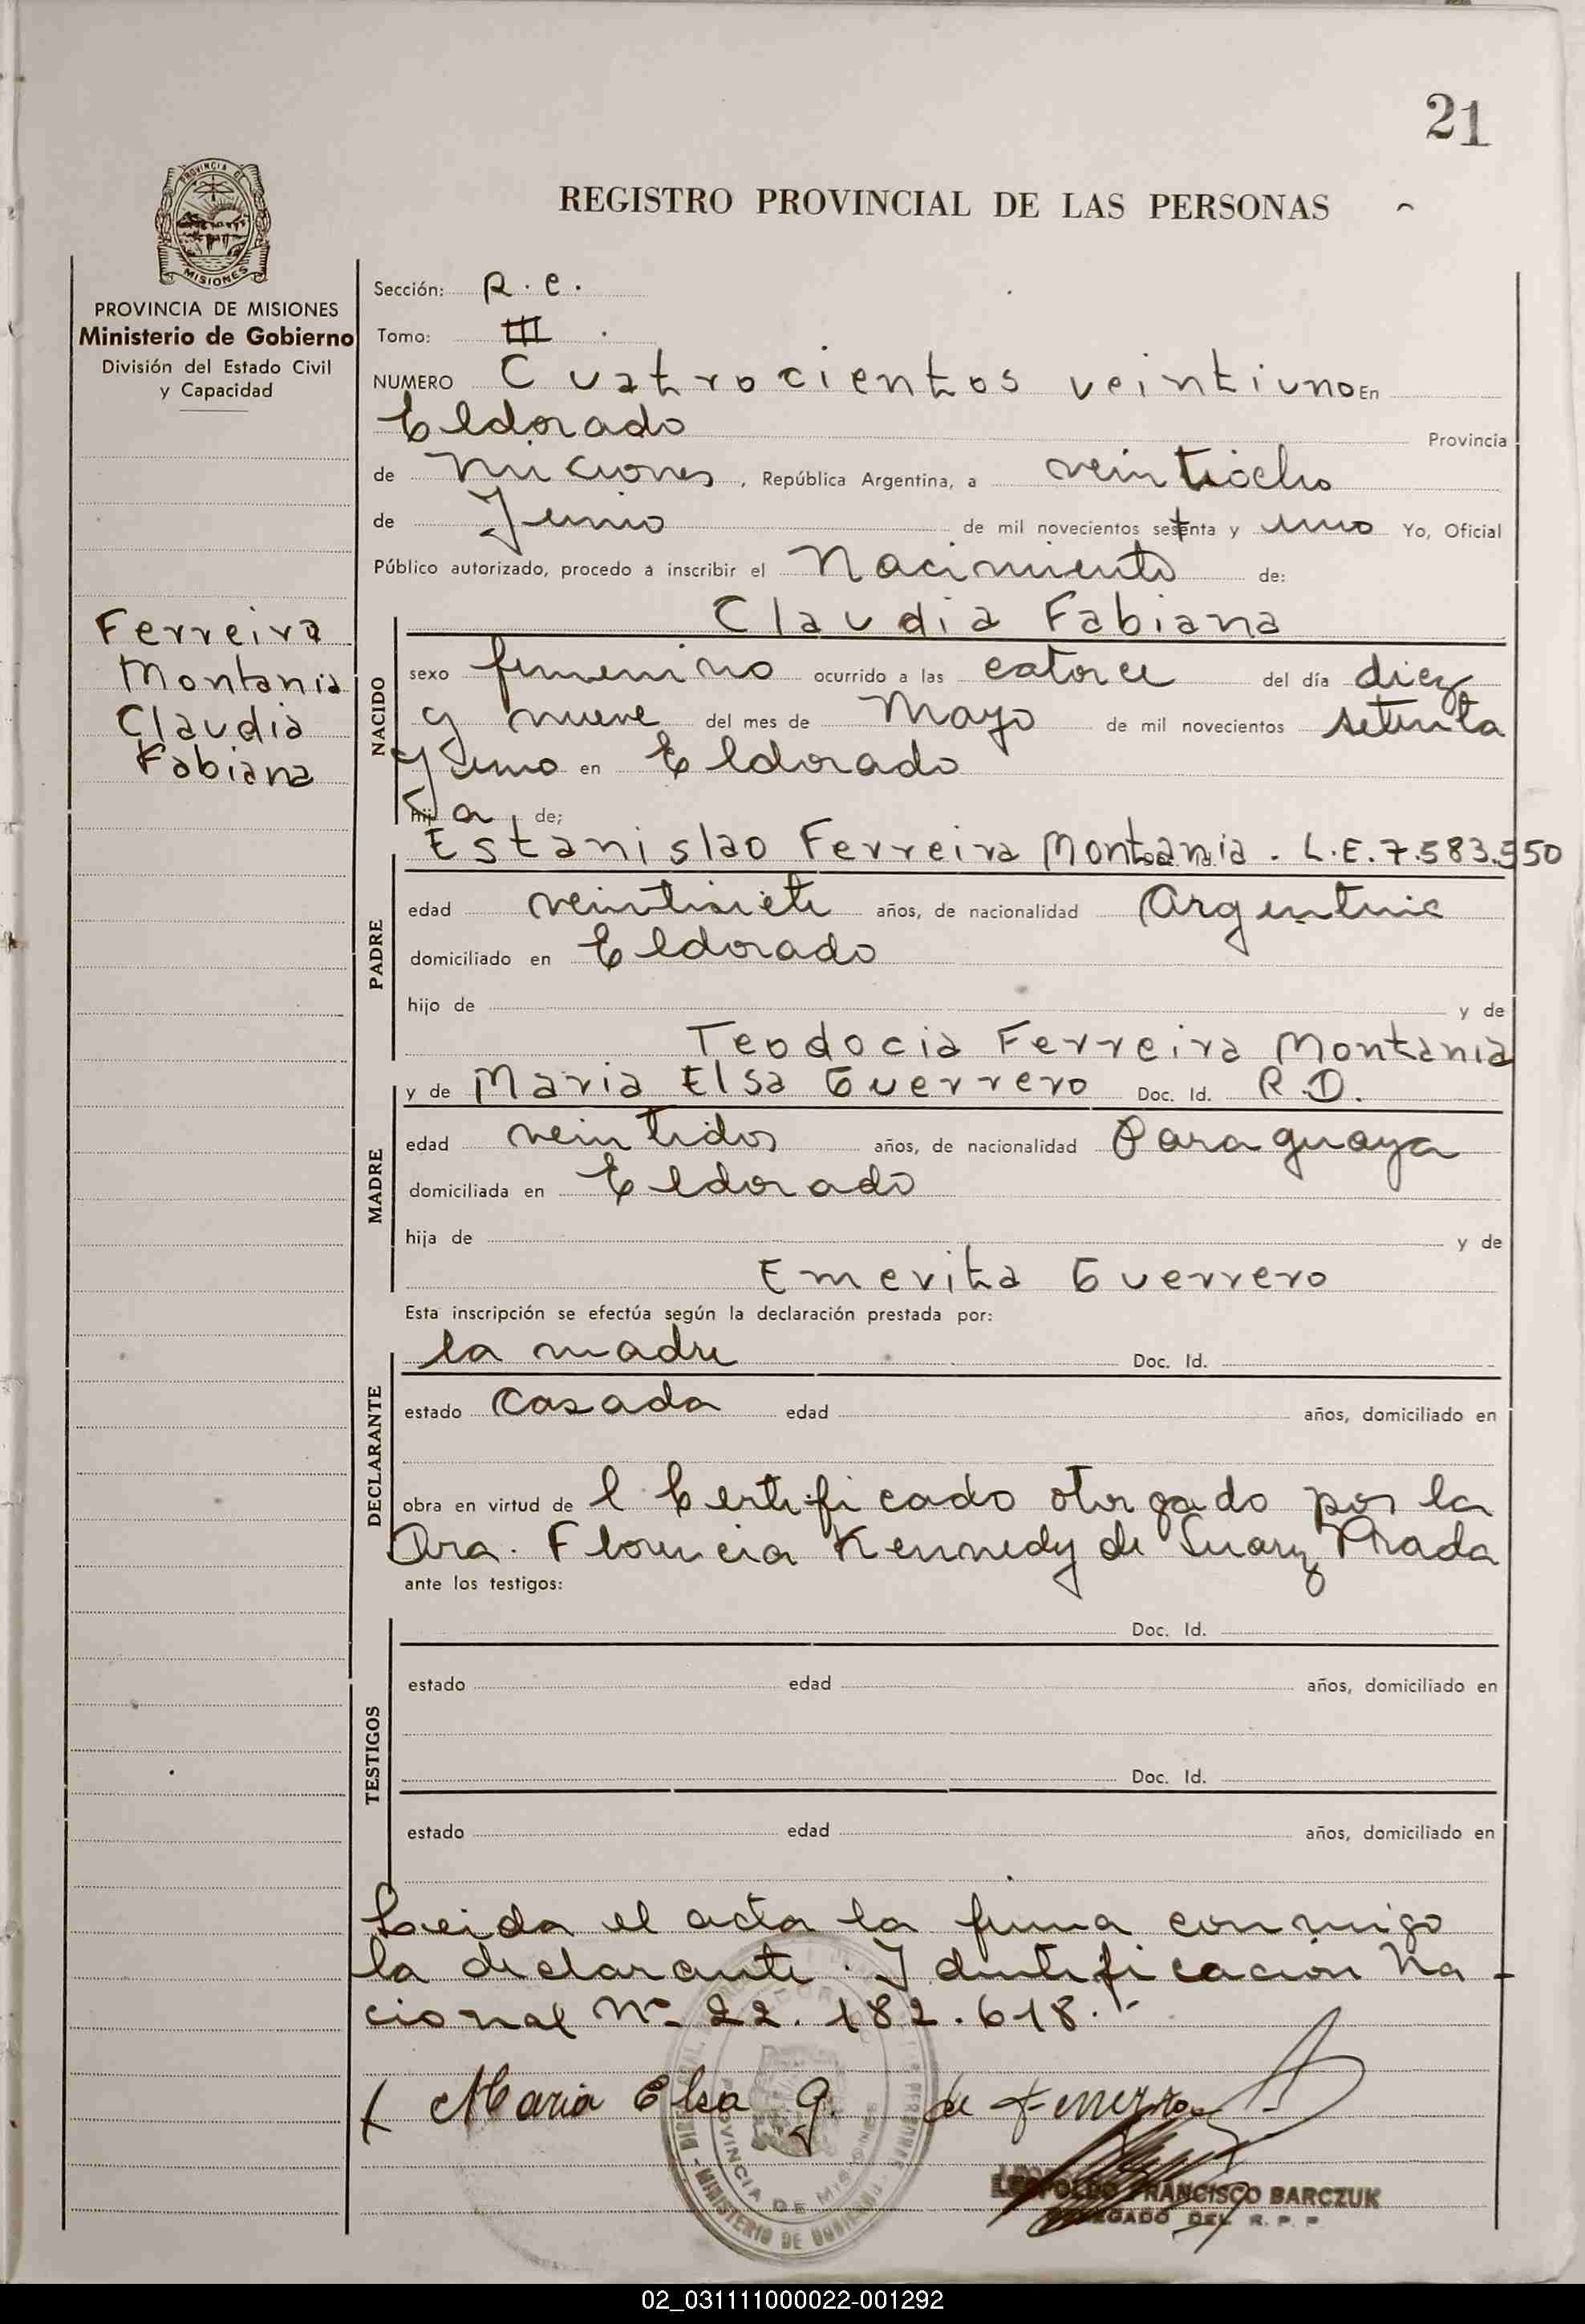 21
REGISTRO PROVINCIAL DE LAS PERSONAS
PROVINCIA DE MISIONES
PROVINCIA DE MISIONES
Ministerio de Gobierno
División del Estado Civil
y Capacidad
Ferreira
Montania
Claudia
Fabiana
Sección: R. C.
Tomo: III
NUMERO Cuatrocientos veintiuno En
Eldorado Provincia
de Miciones, República Argentina, a veintiocho
de Junio de mil novecientos setenta y uno Yo, Oficial
Público autorizado, procedo a inscribir el Nacimiento de:
Claudia Fabiana
NACIDO
sexo femenino ocurrido a las catorce del día diez
y nueve del mes de Mayo de mil novecientos setenta
y uno en Eldorado
hija de;
Estanislao Ferreira Montania. L.E. 7.583.550
PADRE
edad veintisiete años, de nacionalidad Argentina
domiciliado en Eldorado
hijo de y de
Teodocia Ferreira Montania
y de Maria Elsa Guerrero Doc. Id. R.D.
MADRE
edad veintidos años, de nacionalidad Paraguaya
domiciliada en Eldorado
hija de y de
Emerita Guerrero
Esta inscripción se efectúa según la declaración prestada por:
la madre Doc. Id.
DECLARANTE
estado Casada edad años, domiciliado en
obra en virtud de l Certificado otorgado por la
Dra. Florencia Kennedy de Suarez Prada
ante los testigos:
Doc. Id.
TESTIGOS
estado edad años, domiciliado en
Doc. Id.
estado edad años, domiciliado en
Leida el acta la firma conmigo
la declarante. Identificacion Na-
cional Nº 22.182.618.-
Maria Elsa G. de Ferreira
PROVINCIA DE MISIONES
MINISTERIO DE GOBIERNO
LEOPOLDO FRANCISCO BARCZUK
DELEGADO DEL R. P. P
02_031111000022-001292